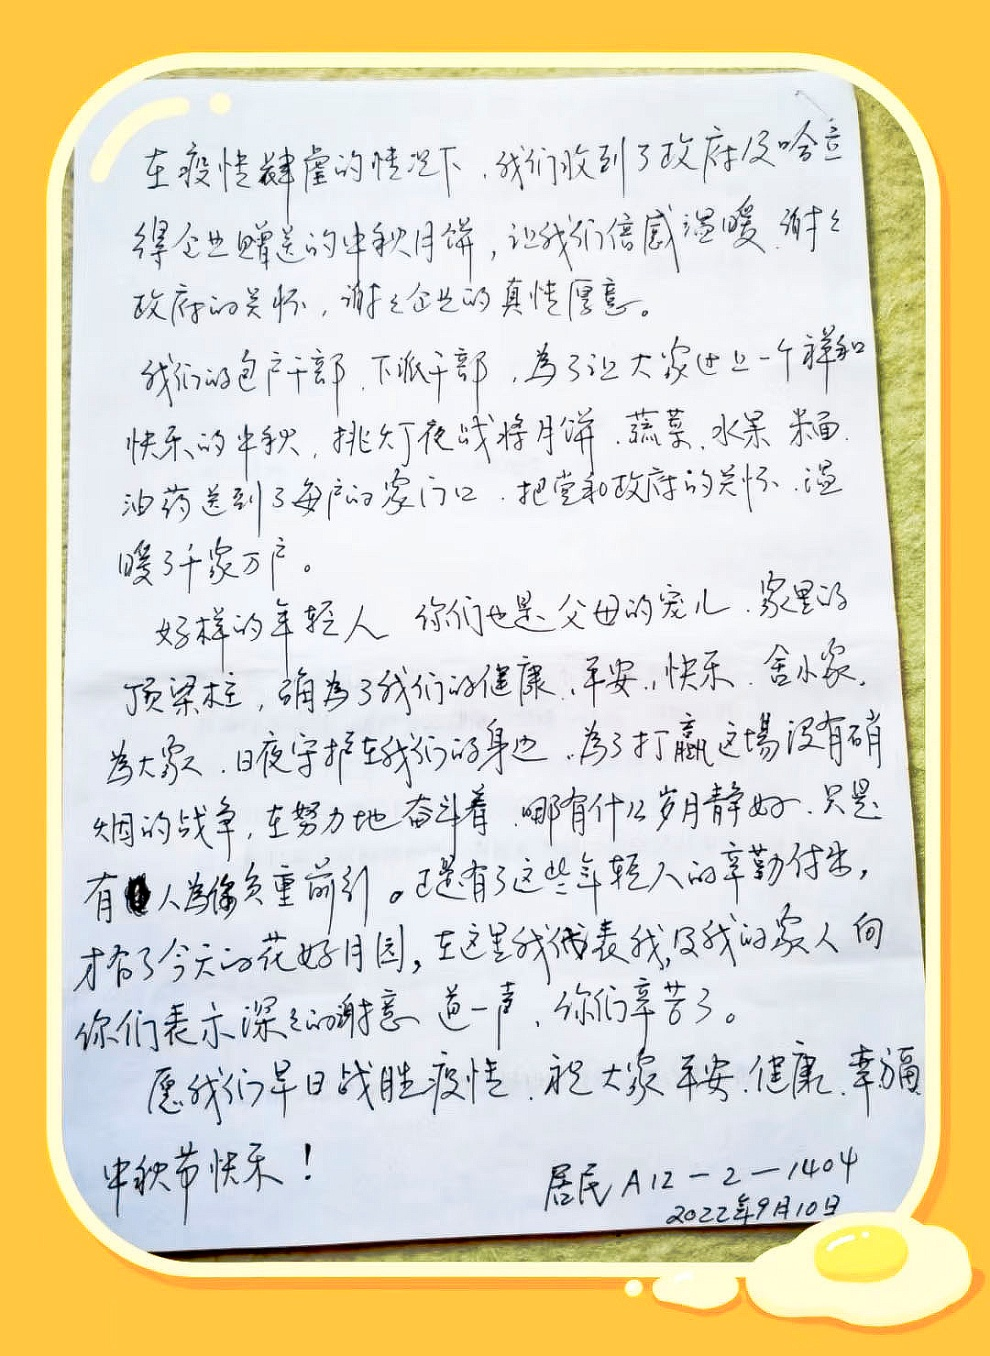 在疫情肆虐的情况下,我们收到了政府及哈立
得企业赠送的中秋月饼,让我们倍感温暖,谢々
政府的关怀,谢々企业的真情厚意。
我们的包户干部、下派干部,為了让大家过上一个祥和
快乐的中秋,挑灯夜战将月饼、蔬菜、水果、米面、
油药送到了每户的家门口,把党和政府的关怀、温
暖了千家万户。
好样的年轻人 你们也是父母的宠儿、家里的
顶梁柱,确為了我们的健康、平安、快乐、舍小家、
為大家、日夜守护在我们的身边,為了打贏这場没有硝
烟的战争,在努力地奋斗着,哪有什么岁月静好,只是
有人為你负重前引。还是有了这些年轻人的辛勤付出,
才有了今天的花好月园,在这里我代表我,及我的家人向
你们表示深々的谢意 道一声,你们辛苦了。
愿我们早日战胜疫情,祝大家平安、健康、幸福
中秋节快乐!
居民A12-2-1404
2022年9月10日